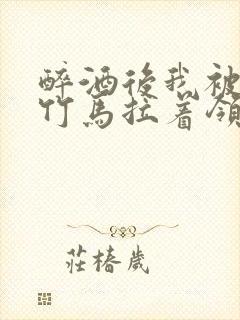 醉酒後我被
竹馬拉着領
莊椿歲